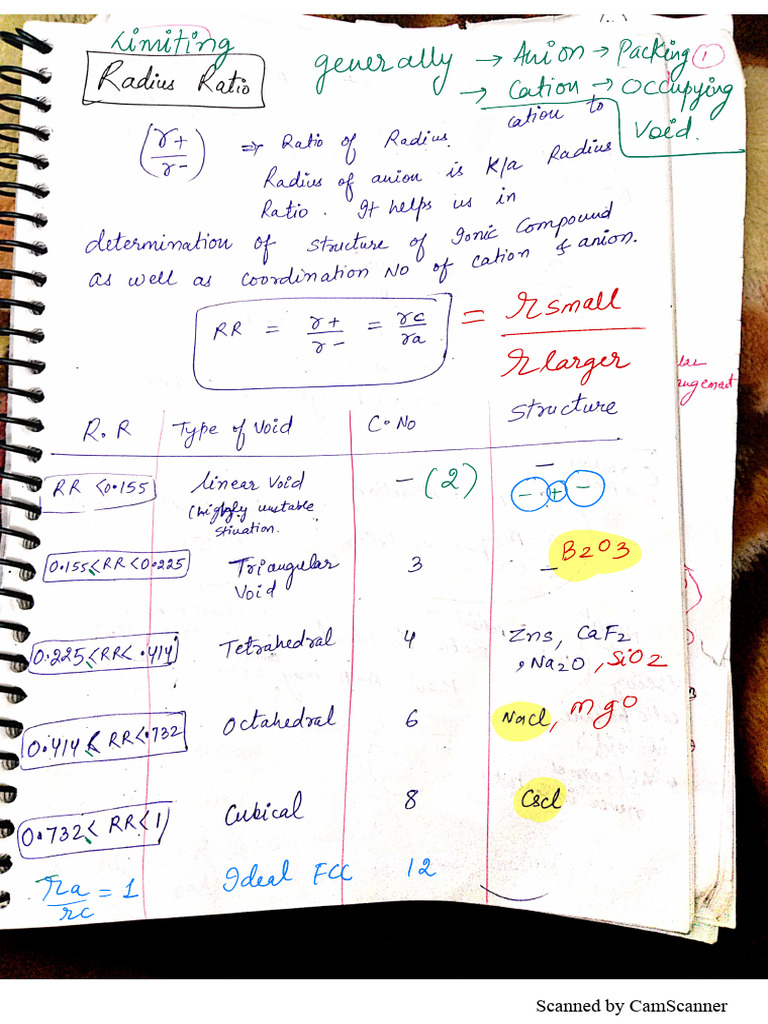 Limiting
Radius Ratio
generally → Anion → Packing ①
→ Cation → Occupying
Void.
(r+/r-) ⇒ Ratio of Radius cation to
Radius of anion is K/a Radius
Ratio. It helps us in
determination of structure of Ionic Compound
as well as coordination No of cation & anion.
RR = r+/r- = rc/ra = r small / r larger
R.R Type of Void C.No Structure
RR <0.155 linear Void - (2) - + -
(highly unstable
stiuation.
0.155<RR<0.225 Triangular Void 3 - B2O3
0.225<RR<.414 Tetrahedral 4 Zns, CaF2
, Na2O, SiO2
0.414< RR<.732 Octahedral 6 Nacl, mgO
0.732< RR<1 Cubical 8 Cscl
ra/rc = 1 Ideal FCC 12
Scanned by CamScanner